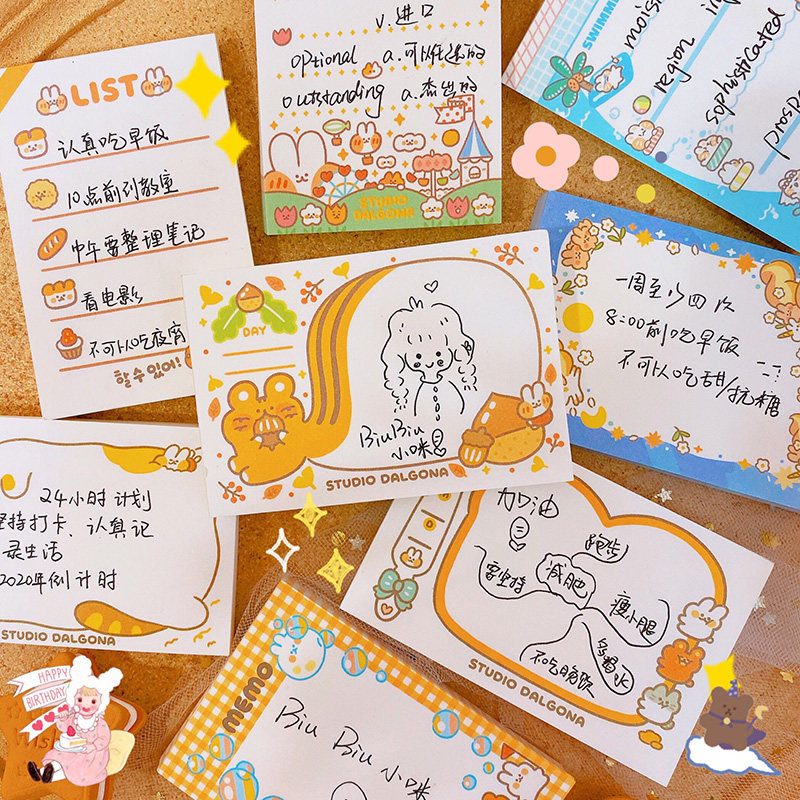 LIST
认真吃早饭
10点前到教室
中午要整理笔记
看电影
不可以吃夜宵
할 수 있어!
v.进口
optional a.可以任选的
outstanding a.杰出的
STUDIO
DALGONA
SWIMMI
mois
region
sophisticated
prosp
DAY
BiuBiu
小咪
STUDIO DALGONA
一周至少四次
8:00前吃早饭
不可以吃甜/抗糖
24小时计划
坚持打卡、认真记
录生活
2020年倒计时
STUDIO DALGONA
加油
跑步
要坚持
减肥
瘦小腿
多喝水
不吃晚饭
STUDIO DALGONA
MEMO
Biu Biu 小咪
HAPPY
BIRTHDAY